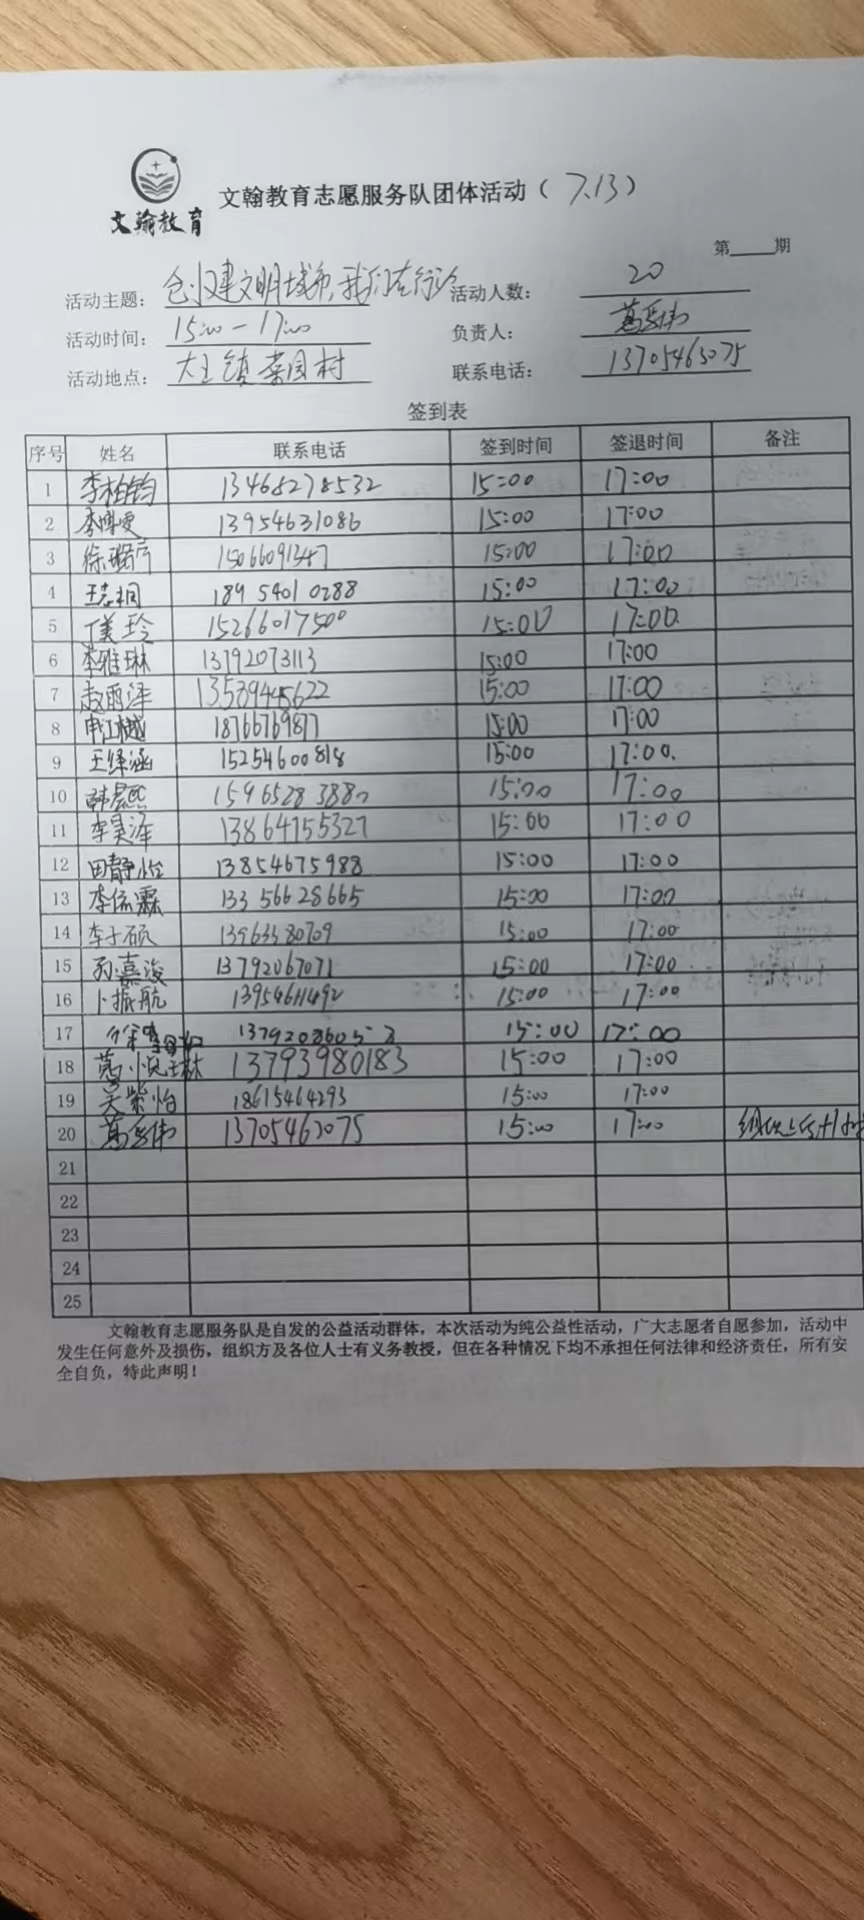 文翰教育志愿服务队团体活动（7.13）
文翰教育
第____期
活动主题：创建文明城市，我们在行动 活动人数：20
活动时间：15:00-17:00 负责人：葛岳伟
活动地点：大王镇菜园村 联系电话：13705463075
签到表
序号 姓名 联系电话 签到时间 签退时间 备注
1 李柏钧 13468278532 15:00 17:00
2 李博雯 13954631086 15:00 17:00
3 徐 15066091347 15:00 17:00
4 王志桐 18954010288 15:00 17:00
5 玲 15266017500 15:00 17:00
6 李雅琳 13792073113 15:00 17:00
7 赵雨泽 15:00 17:00
8 18766769877 15:00 17:00
9 王绎涵 15254600818 15:00 17:00
10 韩熙 15965283880 15:00 17:00
11 李昊泽 13864755327 15:00 17:00
12 田静怡 13854675988 15:00 17:00
13 李依霖 13356628665 15:00 17:00
14 李子硕 13963380709 15:00 17:00
15 孙嘉浚 13792067071 15:00 17:00
16 卜振航 13954611492 15:00 17:00
17 徐 15:00 17:00
18 葛悦琳 13793980183 15:00 17:00
19 吴紫怡 18615464293 15:00 17:00
20 葛岳伟 13705463075 15:00 17:00
21
22
23
24
25
文翰教育志愿服务队是自发的公益活动群体，本次活动为纯公益性活动，广大志愿者自愿参加，活动中
发生任何意外及损伤，组织方及各位人士有义务教授，但在各种情况下均不承担任何法律和经济责任，所有安
全自负，特此声明！